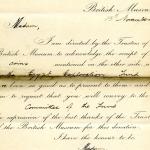 British Museum
15 November
Madam,
I am directed by the Trustees of
British Museum to acknowledge the receipt of
coins mentioned on the other side, w
the Egypt Exploration Fund
been so good as to present to them; and
to request that you will convey to the
Committee of the Fund
expression of the best thanks of the Trustees
the British Museum for this donation.
I have the honour to be,
Madam,